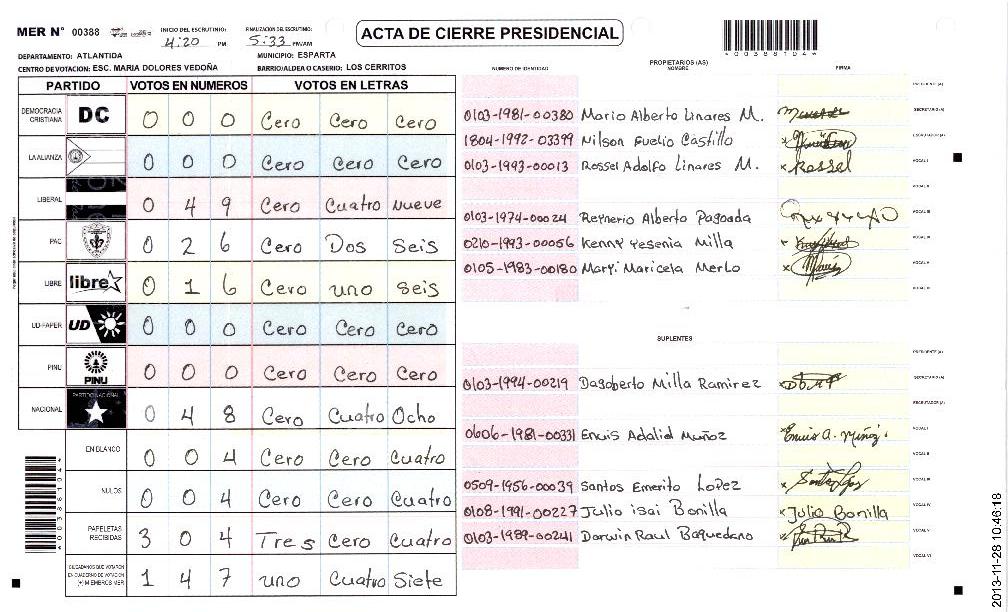 MER N° 00388
INICIO DEL ESCRUTINIO: 4:20 PM
FINALIZACION DEL ESCRUTINIO: 5:33 PM/AM
ACTA DE CIERRE PRESIDENCIAL
DEPARTAMENTO: ATLANTIDA
MUNICIPIO: ESPARTA
CENTRO DE VOTACION: ESC. MARIA DOLORES VEDOÑA
BARRIO/ALDEA O CASERIO: LOS CERRITOS
PARTIDO VOTOS EN NUMEROS VOTOS EN LETRAS
DEMOCRACIA CRISTIANA DC 0 0 0 Cero Cero Cero
LA ALIANZA 0 0 0 Cero Cero Cero
LIBERAL 0 4 9 Cero Cuatro Nueve
PAC 0 2 6 Cero Dos Seis
LIBRE libre 0 1 6 Cero uno Seis
UD-FAPER UD 0 0 0 Cero Cero Cero
PINU PINU 0 0 0 Cero Cero Cero
NACIONAL PARTIDO NACIONAL 0 4 8 Cero Cuatro Ocho
EN BLANCO 0 0 4 Cero Cero Cuatro
NULOS 0 0 4 Cero Cero Cuatro
PAPELETAS RECIBIDAS 3 0 4 Tres Cero Cuatro
CIUDADANOS QUE VOTARON EN CUADERNO DE VOTACION (+) MIEMBROS MER 1 4 7 uno Cuatro Siete
PROPIETARIOS (AS)
NUMERO DE IDENTIDAD NOMBRE FIRMA
PRESIDENTE (A)
0103-1981-00380 Mario Alberto Linares M. SECRETARIO (A)
1804-1992-03399 Nilson Euelio Castillo ESCRUTADOR (A)
0103-1993-00013 Rossel Adolfo Linares M. Rossel VOCAL I
VOCAL II
0103-1974-00024 Reynerio Alberto Pagoada VOCAL III
0210-1993-00056 Kenny Yesenia Milla VOCAL IV
0105-1983-00180 Maryi Maricela Merlo VOCAL V
VOCAL VI
SUPLENTES
PRESIDENTE (A)
0103-1994-00219 Dagoberto Milla Ramirez SECRETARIO (A)
ESCRUTADOR (A)
0606-1981-00331 Enuis Adalid Muñoz VOCAL I
VOCAL II
0509-1956-00039 Santos Emerito Lopez VOCAL III
0108-1991-00227 Julio isai Bonilla Julio Bonilla VOCAL IV
0103-1989-00241 Darwin Raul Baquedano VOCAL V
VOCAL VI
2013-11-28 10:46:18